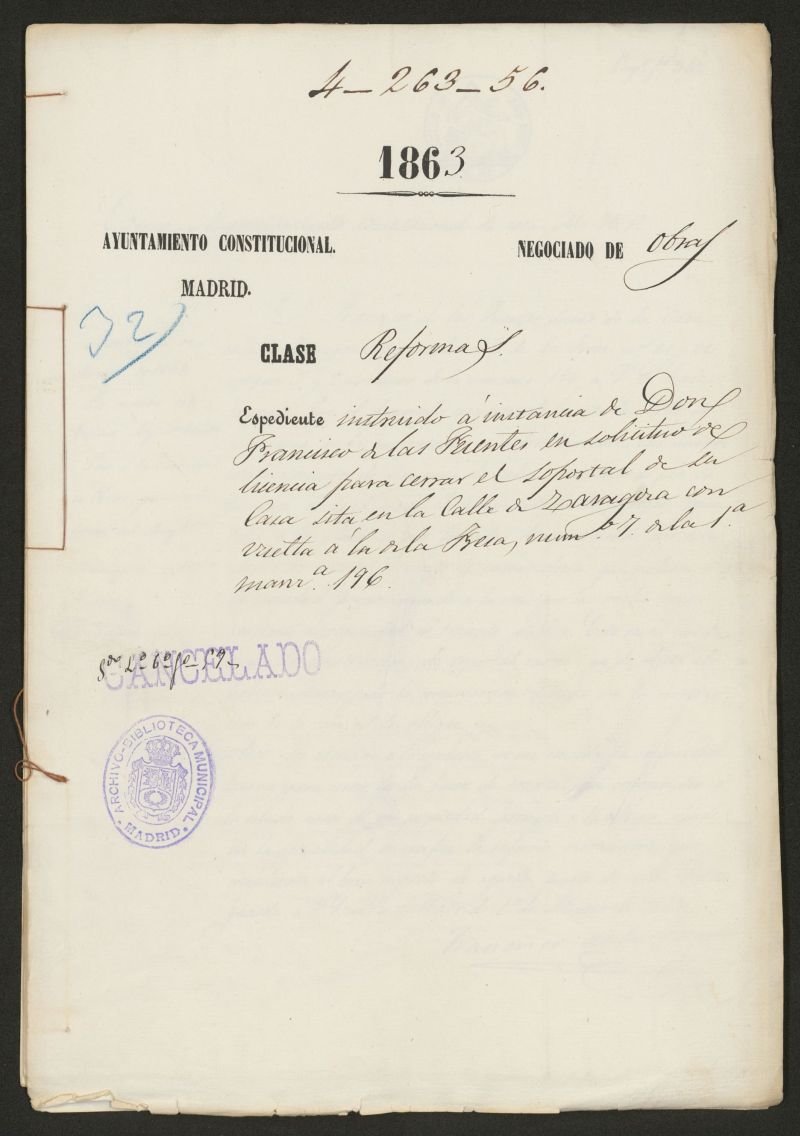 4-263-56.
1863
AYUNTAMIENTO CONSTITUCIONAL.
MADRID.
NEGOCIADO DE Obras
32
CLASE Reformas.
Espediente instruido á instancia de Don
Francisco de las Fuentes en solicitud de
licencia para cerrar el soportal de su
Casa sita en la Calle de Zaragoza con
vuelta á la de la Fresa, num.º 7. de la 1.ª
manz.ª 196.
CANCELADO
ARCHIVO-BIBLIOTECA MUNICIPAL
MADRID